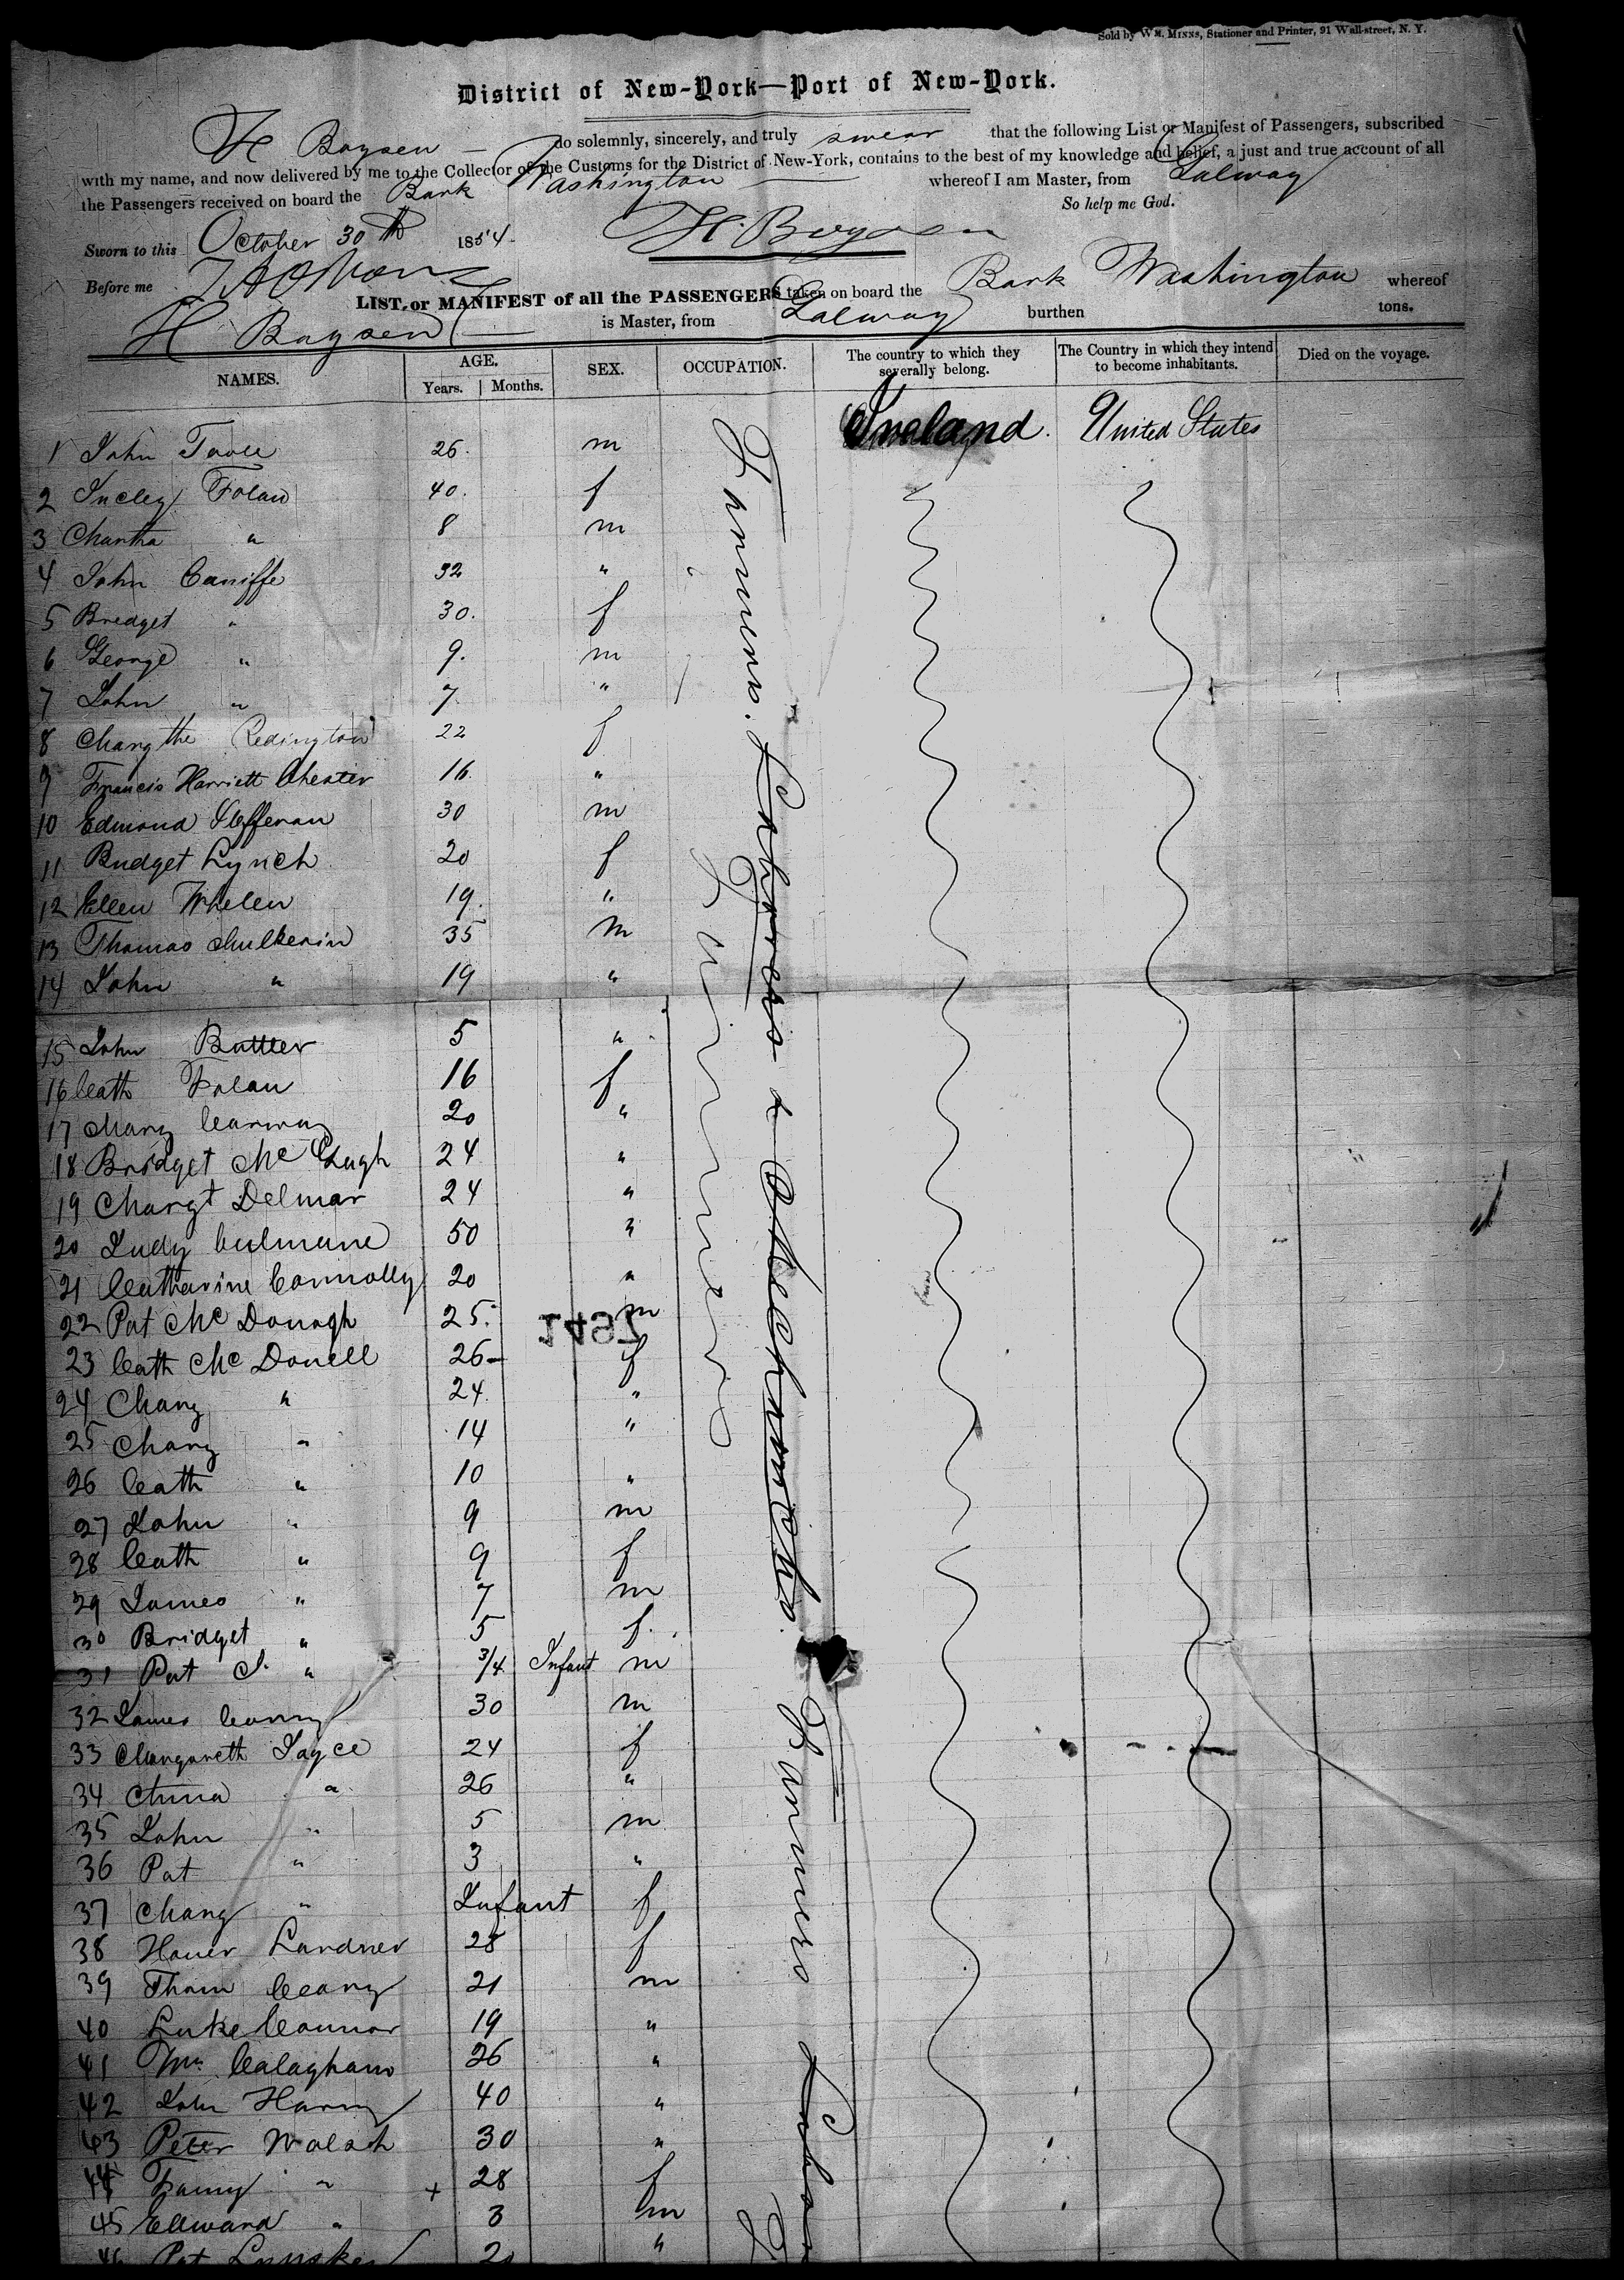 Sold by WM. MINNS, Stationer and Printer, 91 Wall-street, N. Y.
District of New-York—Port of New-York.
H Boysen do solemnly, sincerely, and truly swear that the following List or Manifest of Passengers, subscribed
with my name, and now delivered by me to the Collector of the Customs for the District of New-York, contains to the best of my knowledge and belief, a just and true account of all
the Passengers received on board the Bark Washington whereof I am Master, from Galway
So help me God.
Sworn to this October 30th 1854 H. Boysen
Before me
LIST, or MANIFEST of all the PASSENGERS taken on board the Bark Washington whereof
H Boysen is Master, from Galway burthen tons.
NAMES. AGE. Years. Months. SEX. OCCUPATION. The country to which they severally belong. The Country in which they intend to become inhabitants. Died on the voyage.
Farmers. Labourers & Mechanichs. Farmers
Ireland. United States
1 John Toole 26. m
2 Folan 40. f
3 Martha " 8 m
4 John Caniffe 32 "
5 Bredget " 30. f
6 George " 9. m
7 John " 7 "
8 Redington 22 f
9 Francis Harriett Chester 16. "
10 Edmond Heffernan 30 m
11 Bridget Lynch 20 f
12 Ellen Whelen 19. "
13 Thomas Mulkerin 35 m
14 John " 19 "
15 John Buttler 5 "
16 Cath Folan 16 f
17 Mary 20 "
18 Bridget Mc Hugh 24 "
19 Margt Delmar 24 "
20 Judy Culmane 50 "
21 Catharine Connolly 20 "
22 Pat Mc Donagh 25. m
1497
23 Cath Mc Donell 26 f
24 Mary " 24. "
25 Mary " 14 "
26 Cath " 10 "
27 John " 9 m
28 Cath " 9 f
29 James " 7 m
30 Bridget " 5 f.
31 Pat J. " 3/4 Infant m
32 James 30 m
33 Margareth Joyce 24 f
34 " 26 "
35 John " 5 m
36 Pat " 3 "
37 Mary " Infant f
38 Honer Lardner 28 f
39 Thom 21 m
40 Luke Connor 19 "
41 Wm. Calaghan 26 "
42 John 40 "
43 Peter Walsh 30 "
44 Fanny " + 28 f
45 Edward " 3 m
46 Pat "